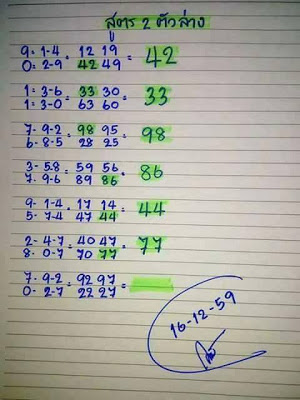 สูตร 2 ตัวล่าง
9 = 1-4 = 12 19 = 42
0 = 2-9 42 49
1 = 3-6 = 33 30 = 33
1 = 3-0 63 60
7- 9-2 = 98 95 = 98
6- 8-5 28 25
3- 5.8 = 59 56 = 86
7. 9-6 89 86
9- 1-4 = 17 14 = 44
5- 7-4 47 44
2- 4-7 = 40 47 = 77
8- 0-7 70 77
7- 9-2 = 92 97 =
0- 2-7 22 27
16-12-59